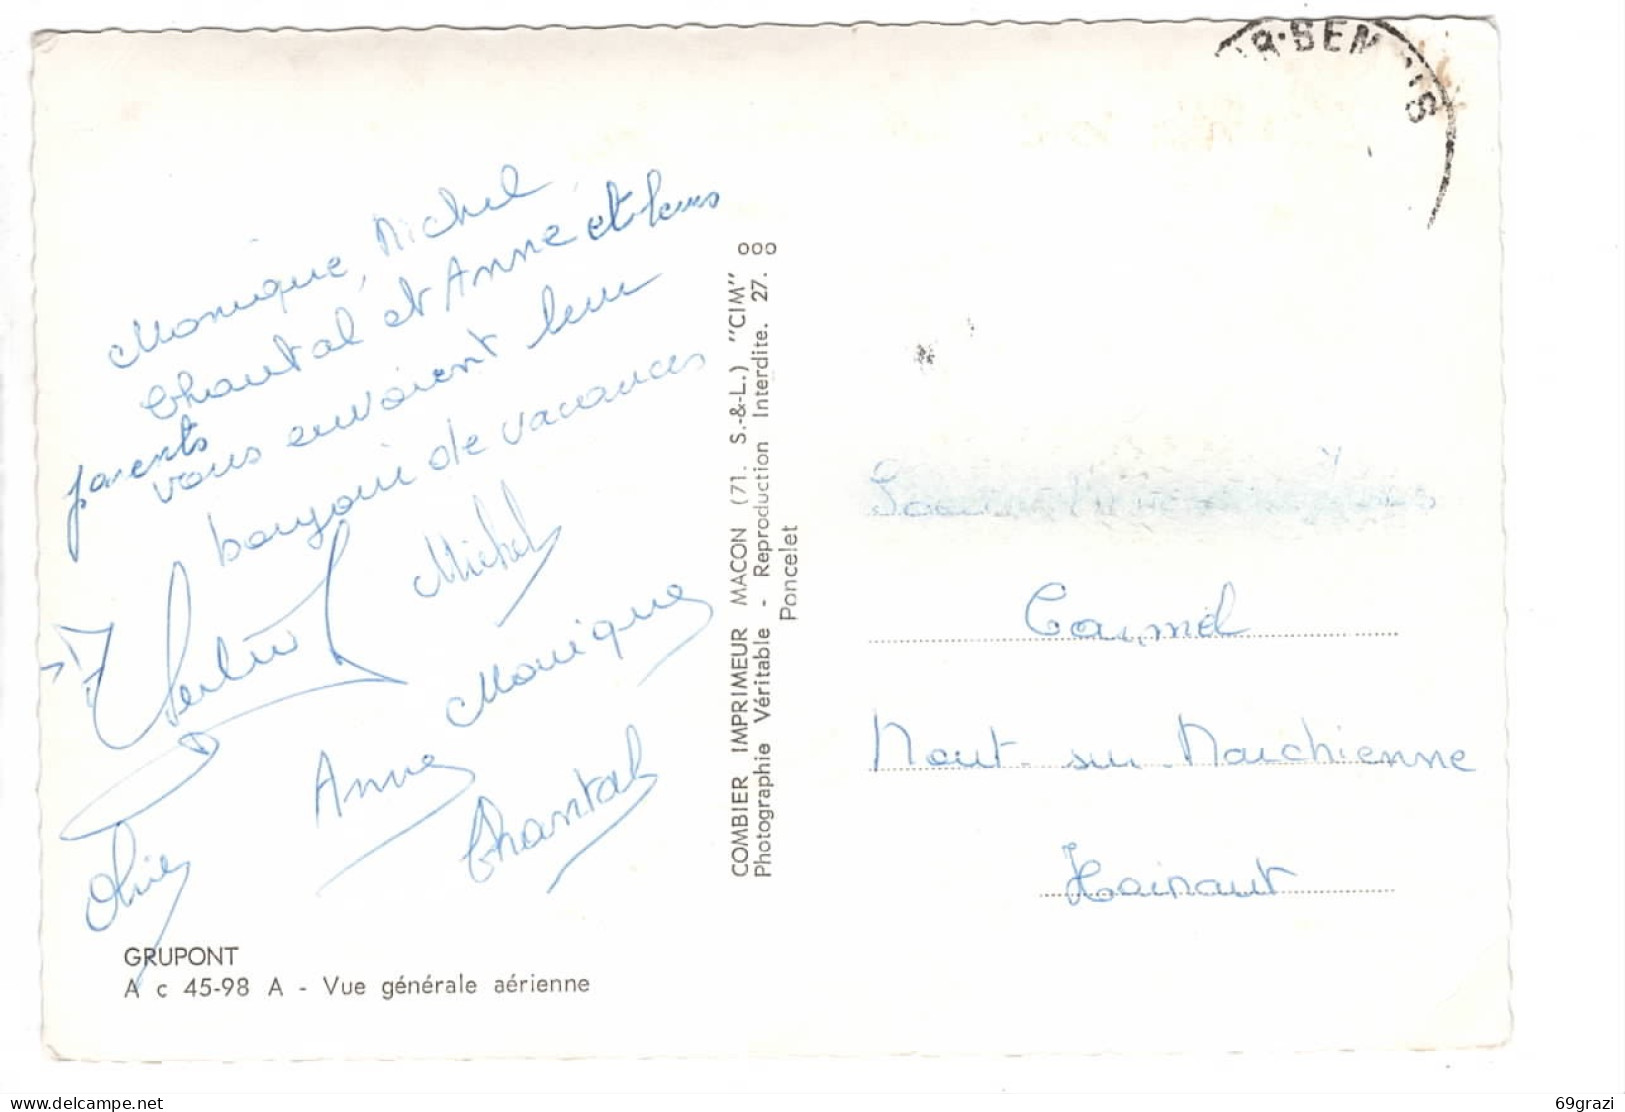 R·SEN IS
Monique, Michel
Chantal et Anne et leurs
parents
vous envoient leur
bonjour de vacances
Michel
Monique
Anne
Chantal
COMBIER IMPRIMEUR MACON (71. S.-&-L.) "CIM"
Photographie Véritable - Reproduction Interdite. 27. ooo
Poncelet
Carmel
Mont-sur-Marchienne
Hainaut
GRUPONT
A c 45-98 A - Vue générale aérienne
www.delcampe.net
69grazi